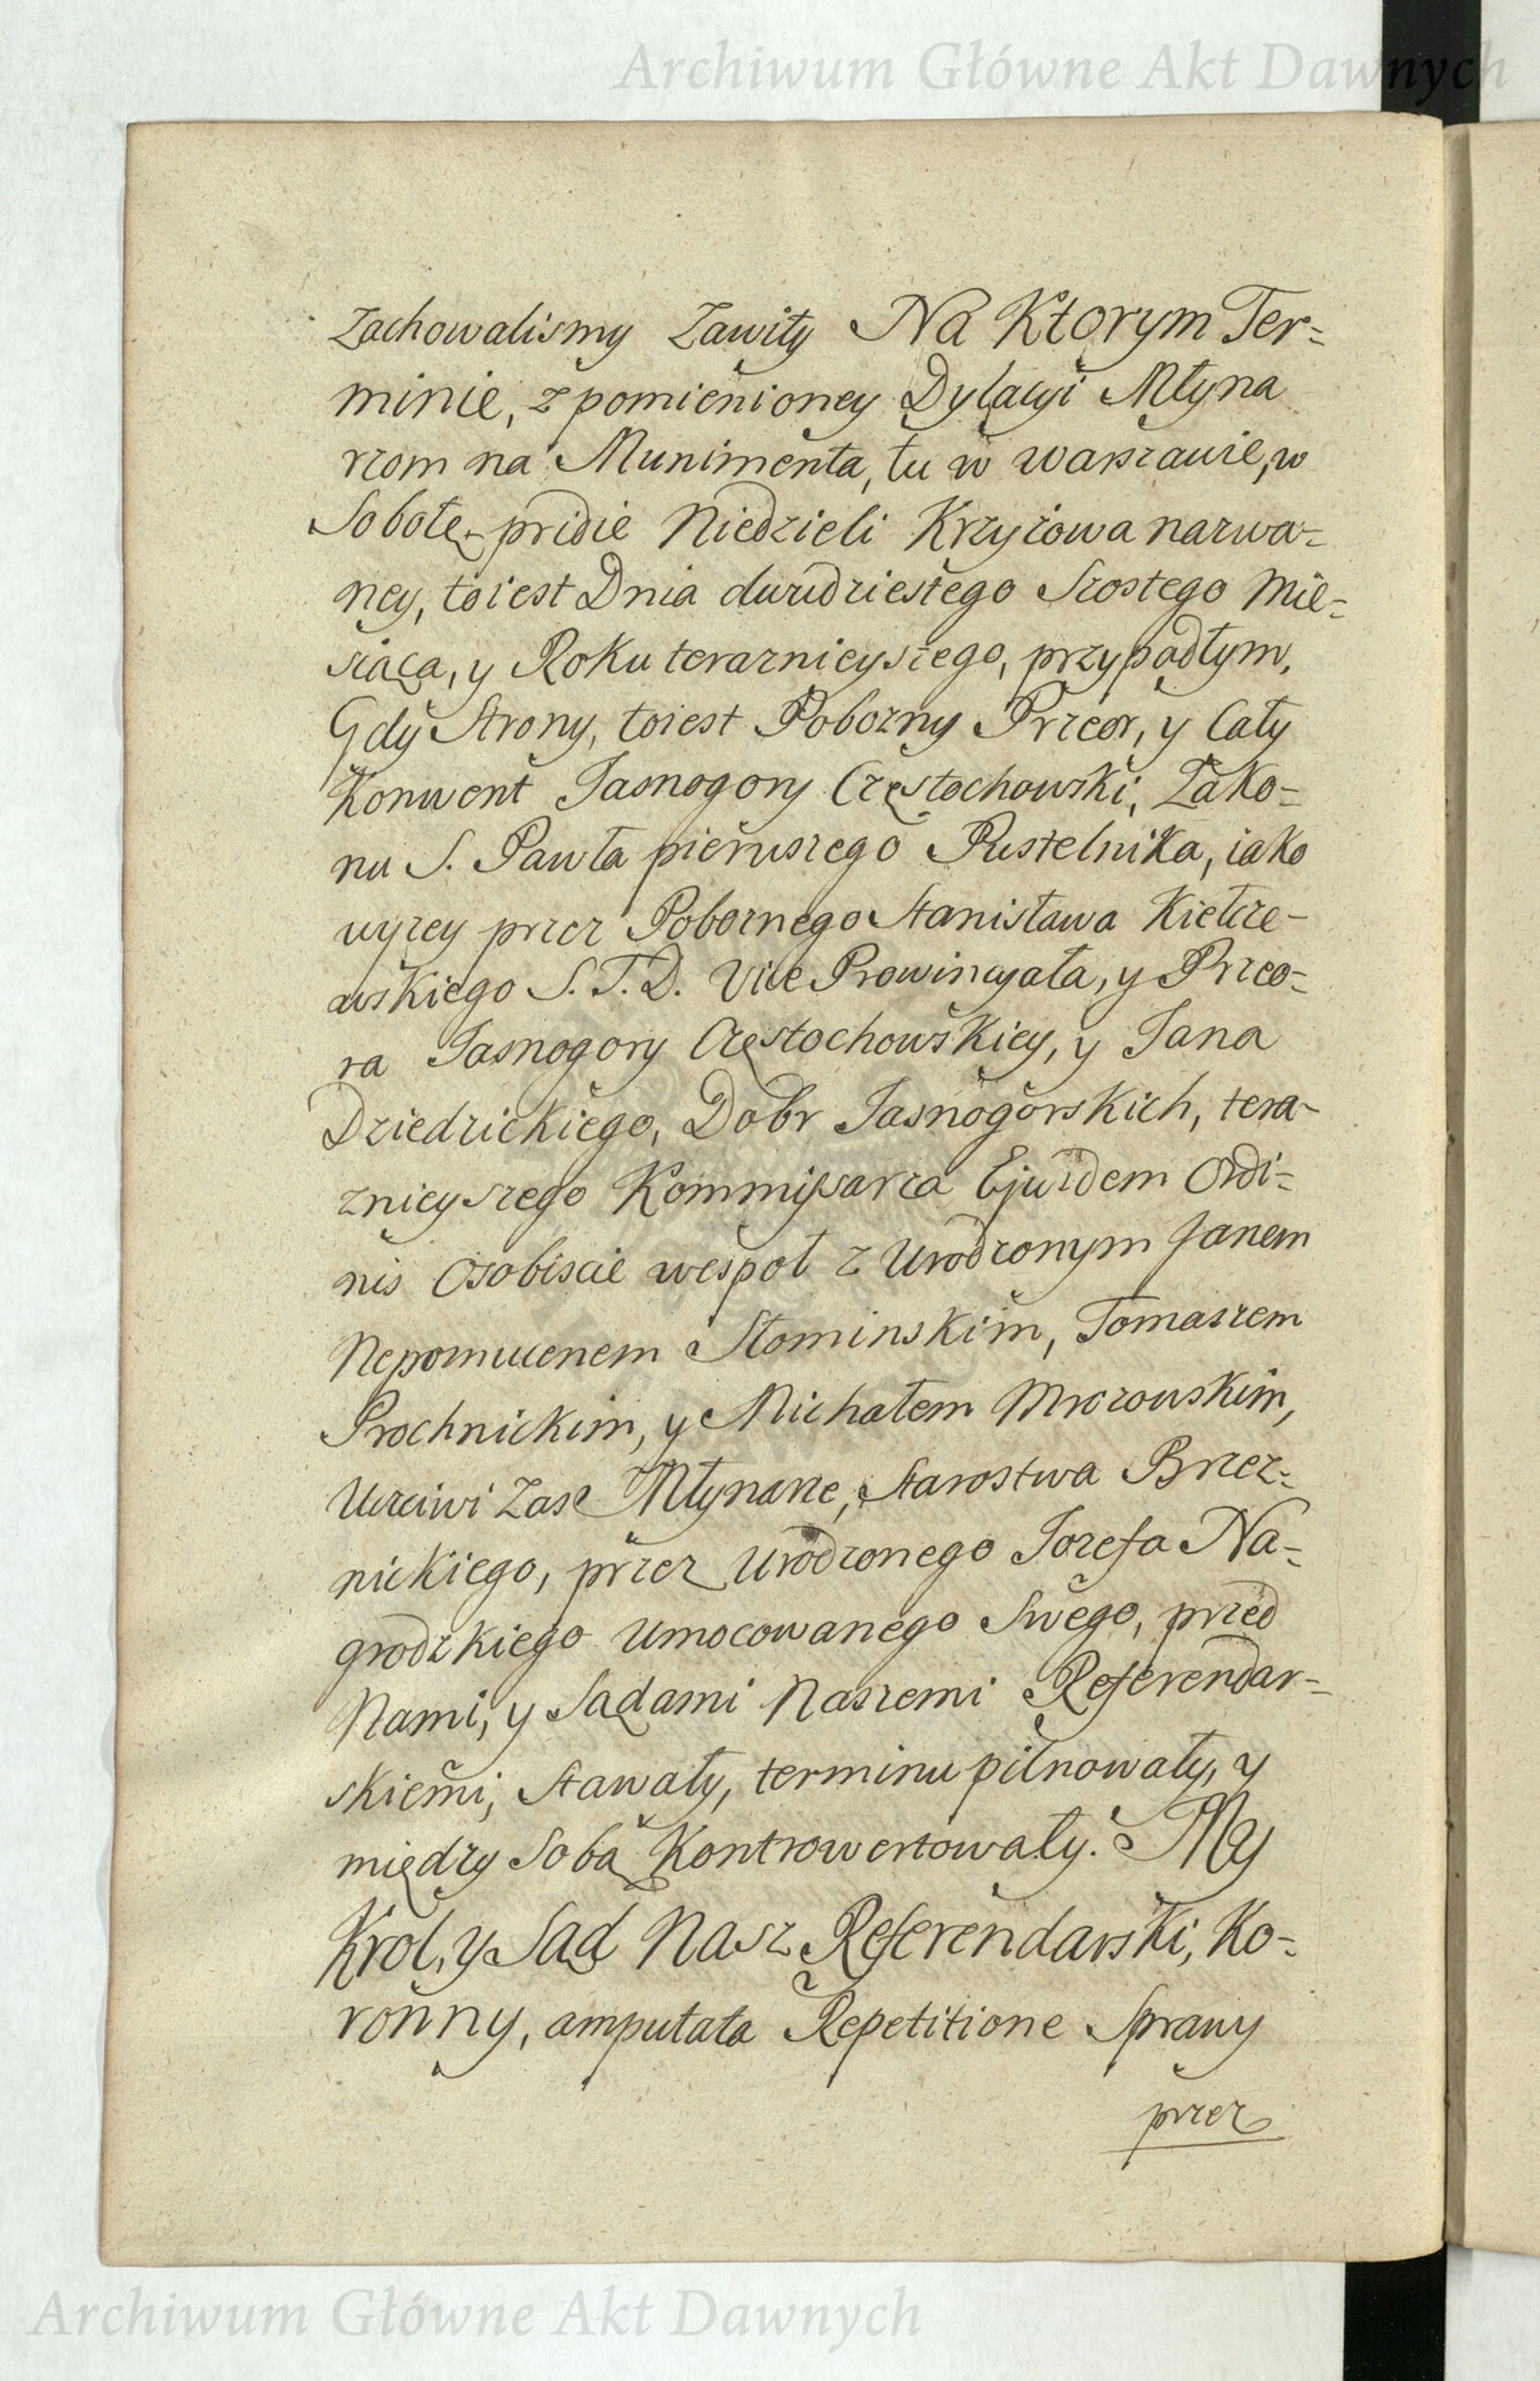 Archiwum Główne Akt Dawnych
Zachowalismy Zawity Na Ktorym Ter=
minie, z pomienioney Dylacyi Młyna
rzom na Munimenta, tu w warszawie, w
Sobotę pridie Niedzieli Krzyżowa nazwa=
ney, toiest Dnia dwudziestego Szostego Mie=
siąca, y Roku teraznieyszego, przypadłym,
Gdy Strony, toiest Pobozny Przeor, y Cały
Konwent Jasnogory Częstochowski, Zako=
nu S. Pawła pierwszego Pustelnika, iako
wyzey przez Poboznego Stanisława Kiełcze=
wskiego S. T. D. Vice Prowincyała, y Przeo=
ra Jasnogory Częstochowskiey, y Jana
Dziedzickiego, Dobr Jasnogorskich, tera=
znieyszego Kommissarza Ejusdem Ordi=
nis Osobiscie wespoł z Urodzonym Janem
Nepomucenem Słominskim, Tomaszem
Prochnickim, y Michałem Mrozowskim,
Uczciwi Zasc Młynarze, Starostwa Brzez=
nickiego, przez Urodzonego Jozefa Na=
grodzkiego Umocowanego Swego, przed
Nami, y Sądami Naszemi Referendar=
skiemi, Stawały, terminu pilnowały, y
między Sobą Kontrowertowały. My
Krol, y Sąd Nasz Referendarski, Ko=
ronny, amputata Repetitione Sprawy
przez
Archiwum Główne Akt Dawnych